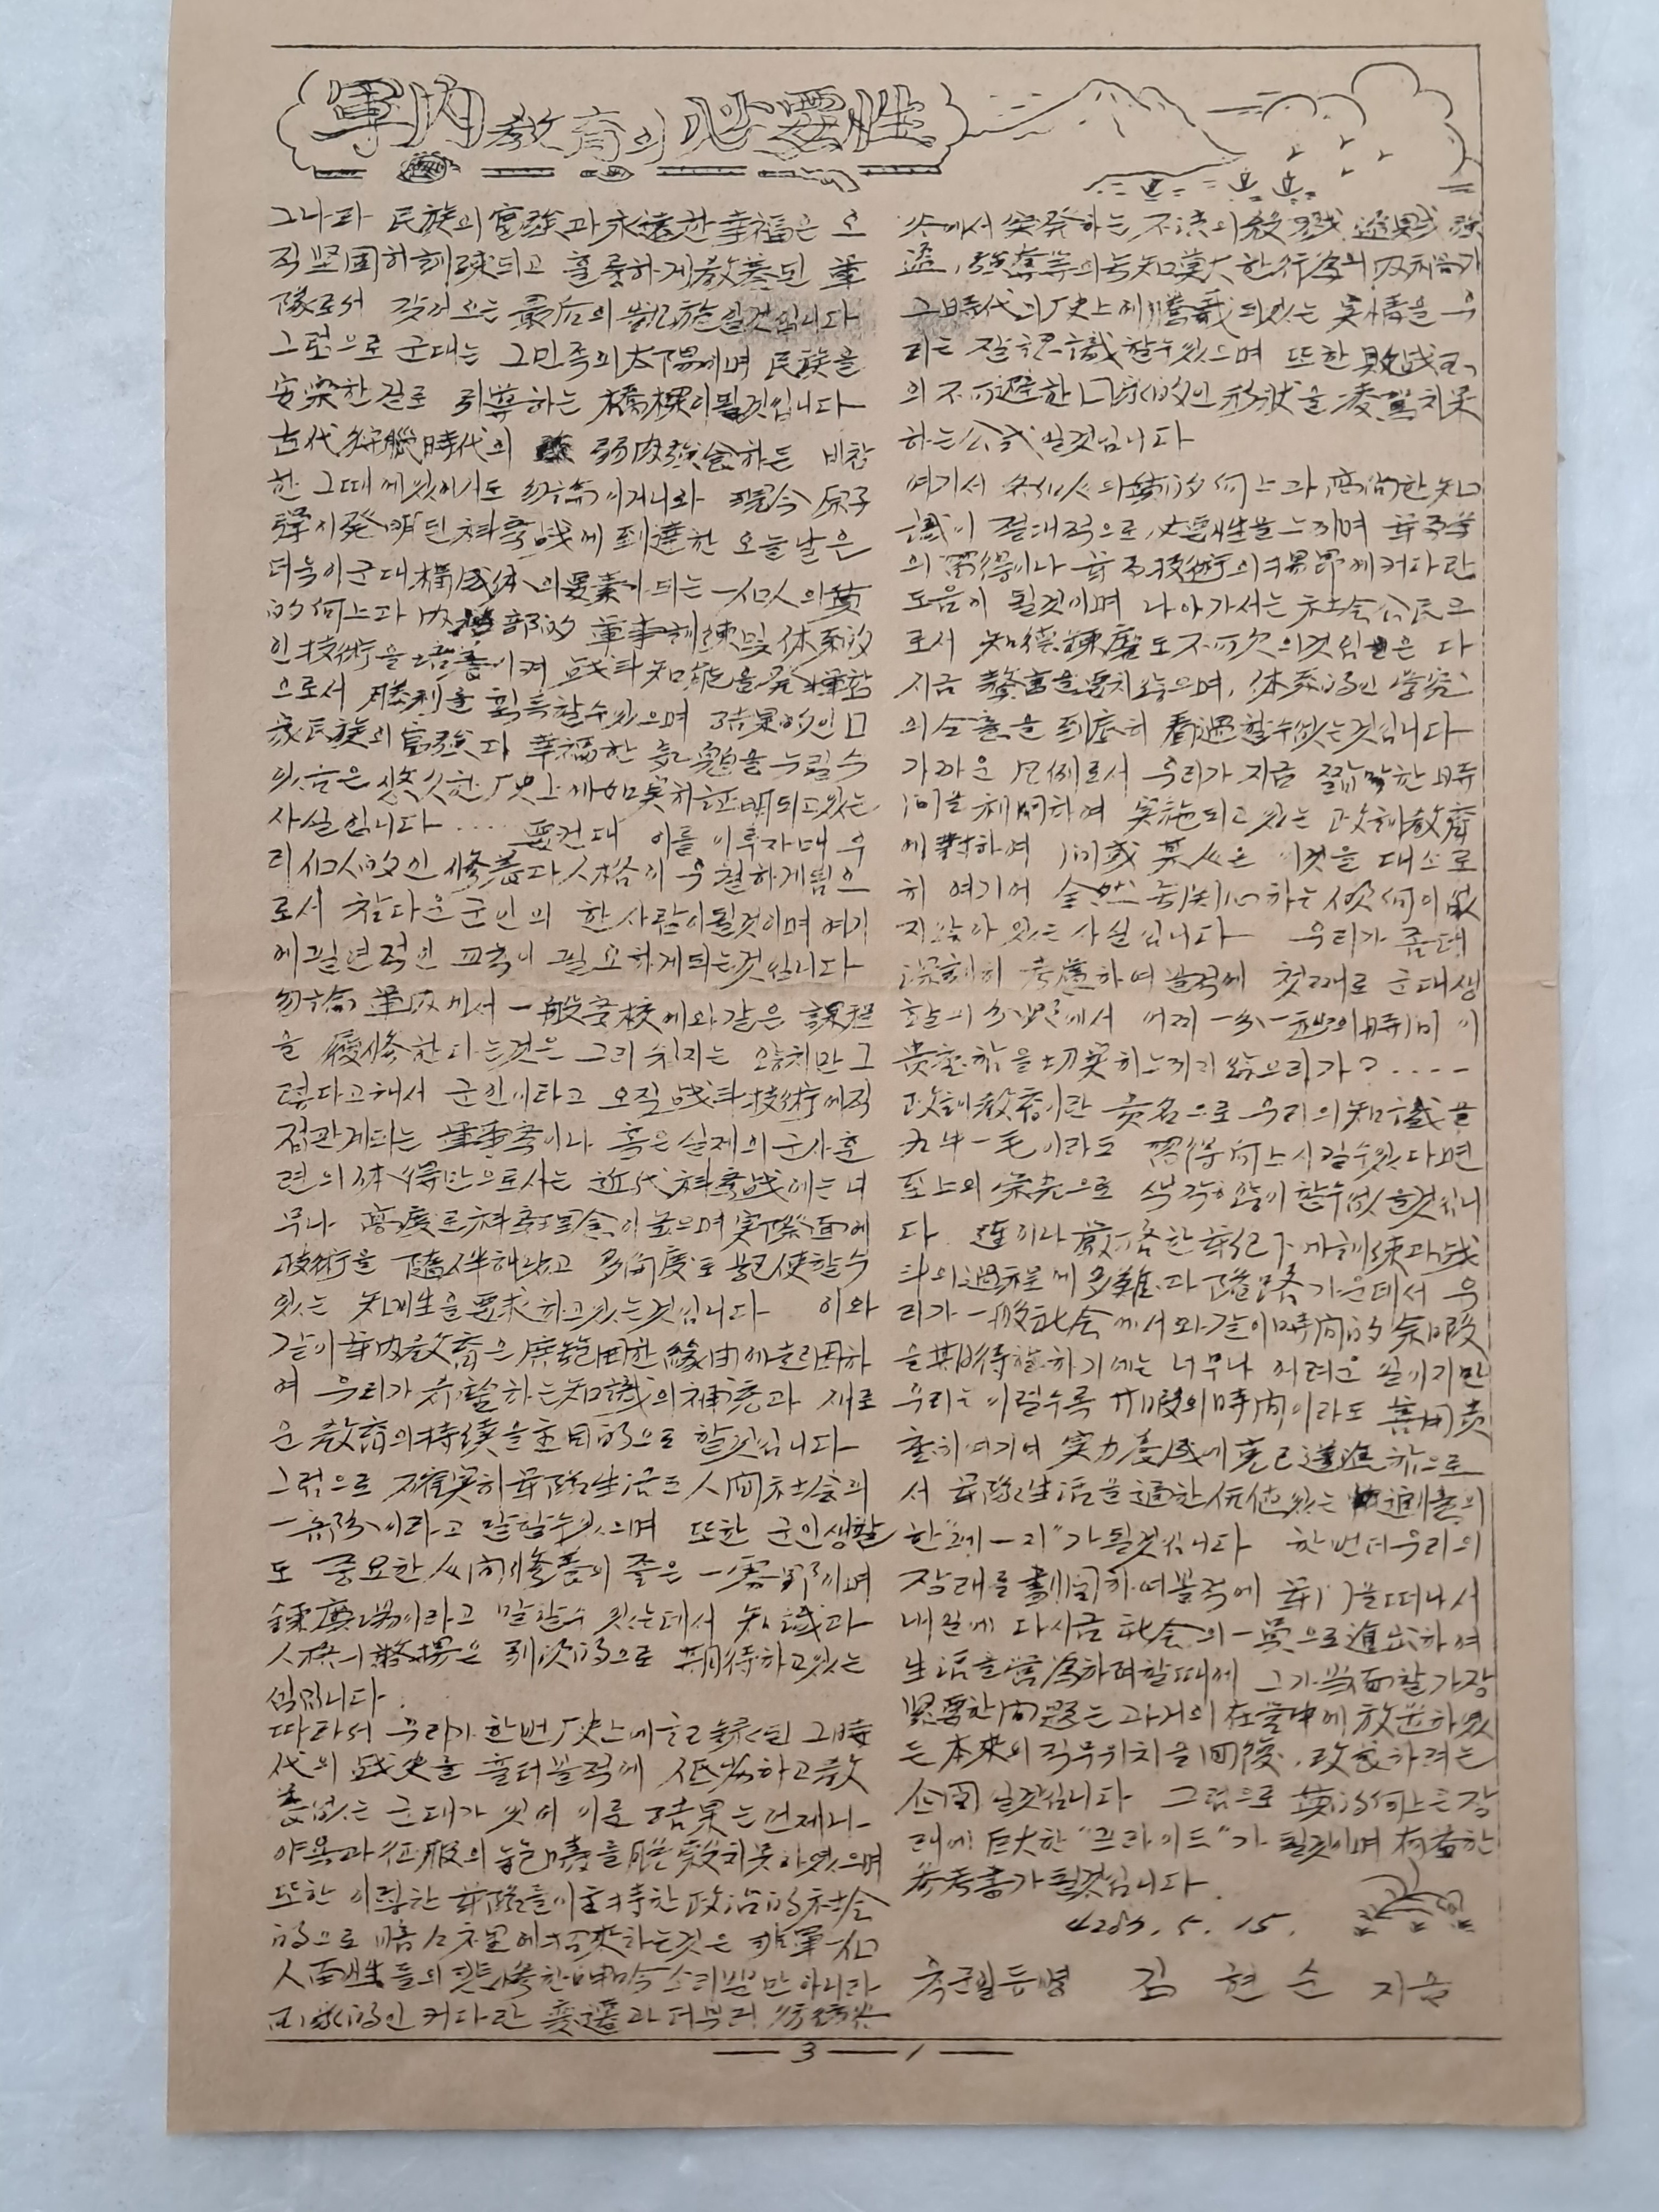 軍內教育의 必要性
그나라 民族의 富強과 永遠한 幸福은 오
직 坚固히 訓練되고 훌륭하게 敎養된 軍
隊로서 갖어오는 最后의 凱旋일것입니다
그럼으로 군대는 그민족의 太陽이며 民族을
安樂한 길로 引導하는 橋樑이될것입니다
古代 狩獵時代의 弱肉強食하든 비참
한 그때에있어서도 勿論이거니와 現今 原子
彈이 発明된 科學战에 到達한 오늘날은
더욱이 군대 構成体의 要素가 되는 一個人의 質
的向上과 內部的 軍事訓練및 体系的
인 技術을 培養이켜 战斗知能을 発揮함
으로서 勝利를 획득할수있으며 結果的인 囗
家民族의 富強과 幸福한 를 누릴수
있음은 悠久한 厂史上에 如実히 証明되고있는
사실입니다 .... 要컨대 이를 이루자며 우
리 個人的인 修養과 人格이 우월하게됨으
로서 참다운 군인의 한사람이될것이며 여기
에 필연적인 교육이 필요하게되는것입니다
勿論 軍內에서 一般學校에와같은 課程
을 履修한다는것은 그리 쉬지는 않치만 그
렇다고해서 군인이라고 오직 战斗技術에직
접관계되는 軍事學이나 혹은 실제의 군사훈
련의 体得만으로서는 近代科學战에는 너
무나 高度로 科學理念이 높으며 実際面에
技術을 隨伴해낳고 多角度로 驅使할수
있는 知性을 要求하고있는것입니다 이와
같이 軍內敎育은 廣範囲한 緣由에 起因하
여 우리가 希望하는 知識의 補充과 새로
운 敎育의 持續을 主目的으로 할것입니다
그럼으로 確実히 軍隊生活은 人間社会의
一部分이라고 말할수있으며 또한 군인생활
도 중요한 修養의 좋은 一分野이며
鍊磨場이라고 말할수 있는데서 知識과
人格의 發揚은 到次的으로 期待하고있는
섬입니다.
따라서 우리가 한번 厂史上에 記録된 그時
代의 战史를 훌터볼적에 低劣하고 敎
養없는 군대가 있어 이로 結果는 언제나
야욕과 征服의 를 脫殼치못하였으며
또한 이렇한 軍隊들이 主持한 政治的 社会
的으로 暗々裡에 招來하는것은 非單一個
人 들의 悲惨한 呻吟소리뿐만 아니라
囗家的인 커다란 変遷과 더부러
에서 突発하는 不法의 殺戮 強
盜, 強奪等의 무知莫大한 行爲의 가
그時代의 厂史上에 謄載되있는 実情을 우
리는 잘 認識할수있으며 또한 敗战 
의 不可避한 囗家的인 形狀을 凌駕치못
하는 公式일것입니다
여기서 各個人의 質的向上과 高尙한 知
識이 절대적으로 必要性을 느끼며 軍事学
의 習得이나 軍事技術의 에커다란
도음이 될것이며 나아가서는 社会公民으
로서 知德鍊磨도 不可欠의것임은 다
시금 贅言을 要치않으며, 体系的인 学究
의 을 到底히 看過할수없는것입니다
가까운 凡例로서 우리가 지금 짧막한 時
间을 利用하여 実施되고있는 政訓敎育
에 對하여 间或 某人은 이것을 대스로
히 여기어 全然 하는 傾向이 없
지않아 있는 사실입니다 우리가 좀더
深刻히 考慮하여볼적에 첫재로 군대생
활의 에서 어찌 一分一秒의 時间이
貴重함을 切実히 느끼지 않으리가?....
政訓敎育이란 美名으로 우리의 知識을
九牛一毛이라도 習得向上시킬수있다면
至上의 栄光으로 생각않이할수없을것입니
다. 遲이나 嚴格한 軍紀下에 訓練과 战
斗의 過程에 多難과 隘路 가운데서 우
리가 一般社会에서와같이 時间的 余暇
을 期待할하기에는 너무나 어려운 일이지만
우리는 이럴수록 의時间이라도 善用貴
重히여기며 実力養成에 克己邁進함으로
서 軍隊生活을 通한 价値있는 의
한 "페-지"가 될것입니다 한번더 우리의
장래를 劃圖하여볼적에 軍门을 떠나서
내일에 다시금 社会의 一員으로 進出하여
生活을 営爲하려할때에 그가 当面할 가장
緊要한 问題는 과거의 在營中에 放送하였
는 本來의 직무위치을 回復, 改善하려는
企圖일것입니다 그럼으로 質的向上은 장
래에 巨大한 "프라이드"가 될것이며 有益한
参考書가 될것입니다.
4287. 5. 15.
육군일등병 김 현 순 지음
— 3 — 1 —